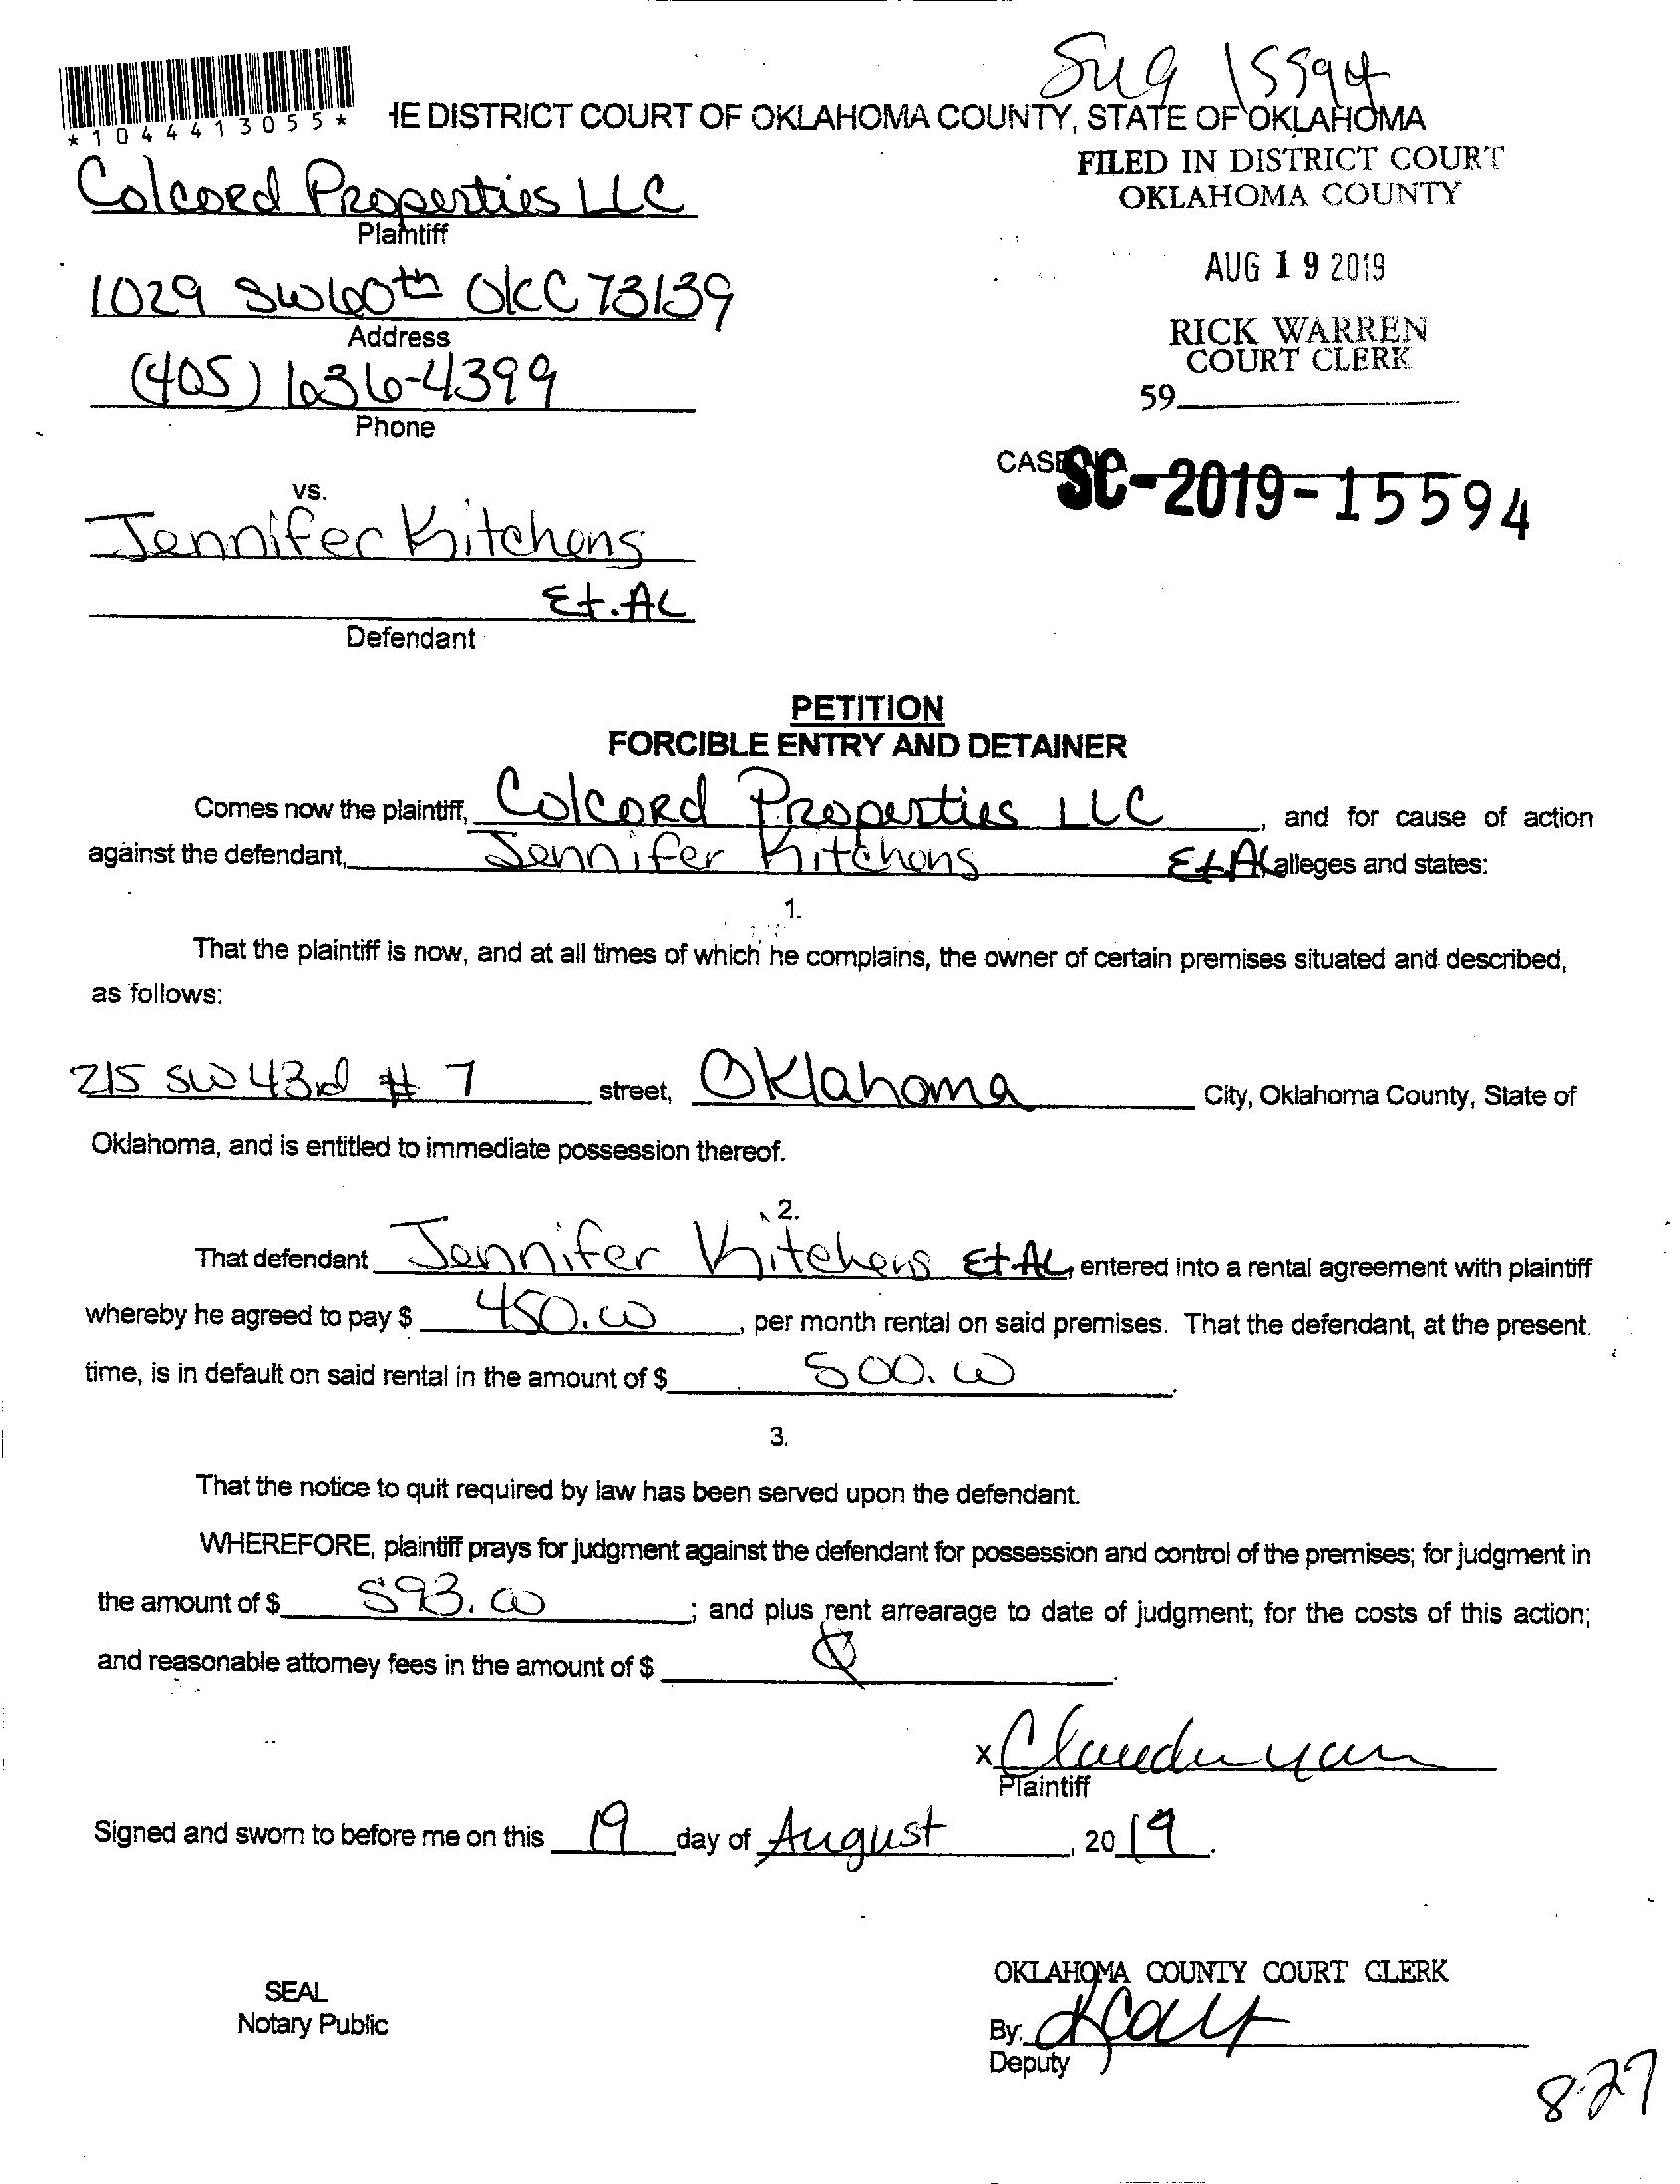 Sug 15594
*1044413055*
HE DISTRICT COURT OF OKLAHOMA COUNTY, STATE OF OKLAHOMA
FILED IN DISTRICT COURT
OKLAHOMA COUNTY
Colcord Properties LLC
Plaintiff
AUG 19 2019
1029 SW 60th OKC 73139
Address
RICK WARREN
COURT CLERK
(405) 636-4399
59
Phone
CASE
SC-2019-15594
vs.
Jennifer Kitchens
Et.AL
Defendant
PETITION
FORCIBLE ENTRY AND DETAINER
Comes now the plaintiff, Colcord Properties LLC, and for cause of action
against the defendant, Jennifer Kitchens Et AL alleges and states:
1.
That the plaintiff is now, and at all times of which he complains, the owner of certain premises situated and described,
as follows:
215 SW 43rd # 7 street, Oklahoma City, Oklahoma County, State of
Oklahoma, and is entitled to immediate possession thereof.
2.
That defendant Jennifer Kitchens Et.AL, entered into a rental agreement with plaintiff
whereby he agreed to pay $ 450.00, per month rental on said premises. That the defendant, at the present
time, is in default on said rental in the amount of $ 500.00.
3.
That the notice to quit required by law has been served upon the defendant.
WHEREFORE, plaintiff prays for judgment against the defendant for possession and control of the premises; for judgment in
the amount of $ 593.00; and plus rent arrearage to date of judgment; for the costs of this action;
and reasonable attorney fees in the amount of $ 0.
x
Plaintiff
Signed and sworn to before me on this 19 day of August, 2019.
OKLAHOMA COUNTY COURT CLERK
SEAL
Notary Public
By:
Deputy
8-27